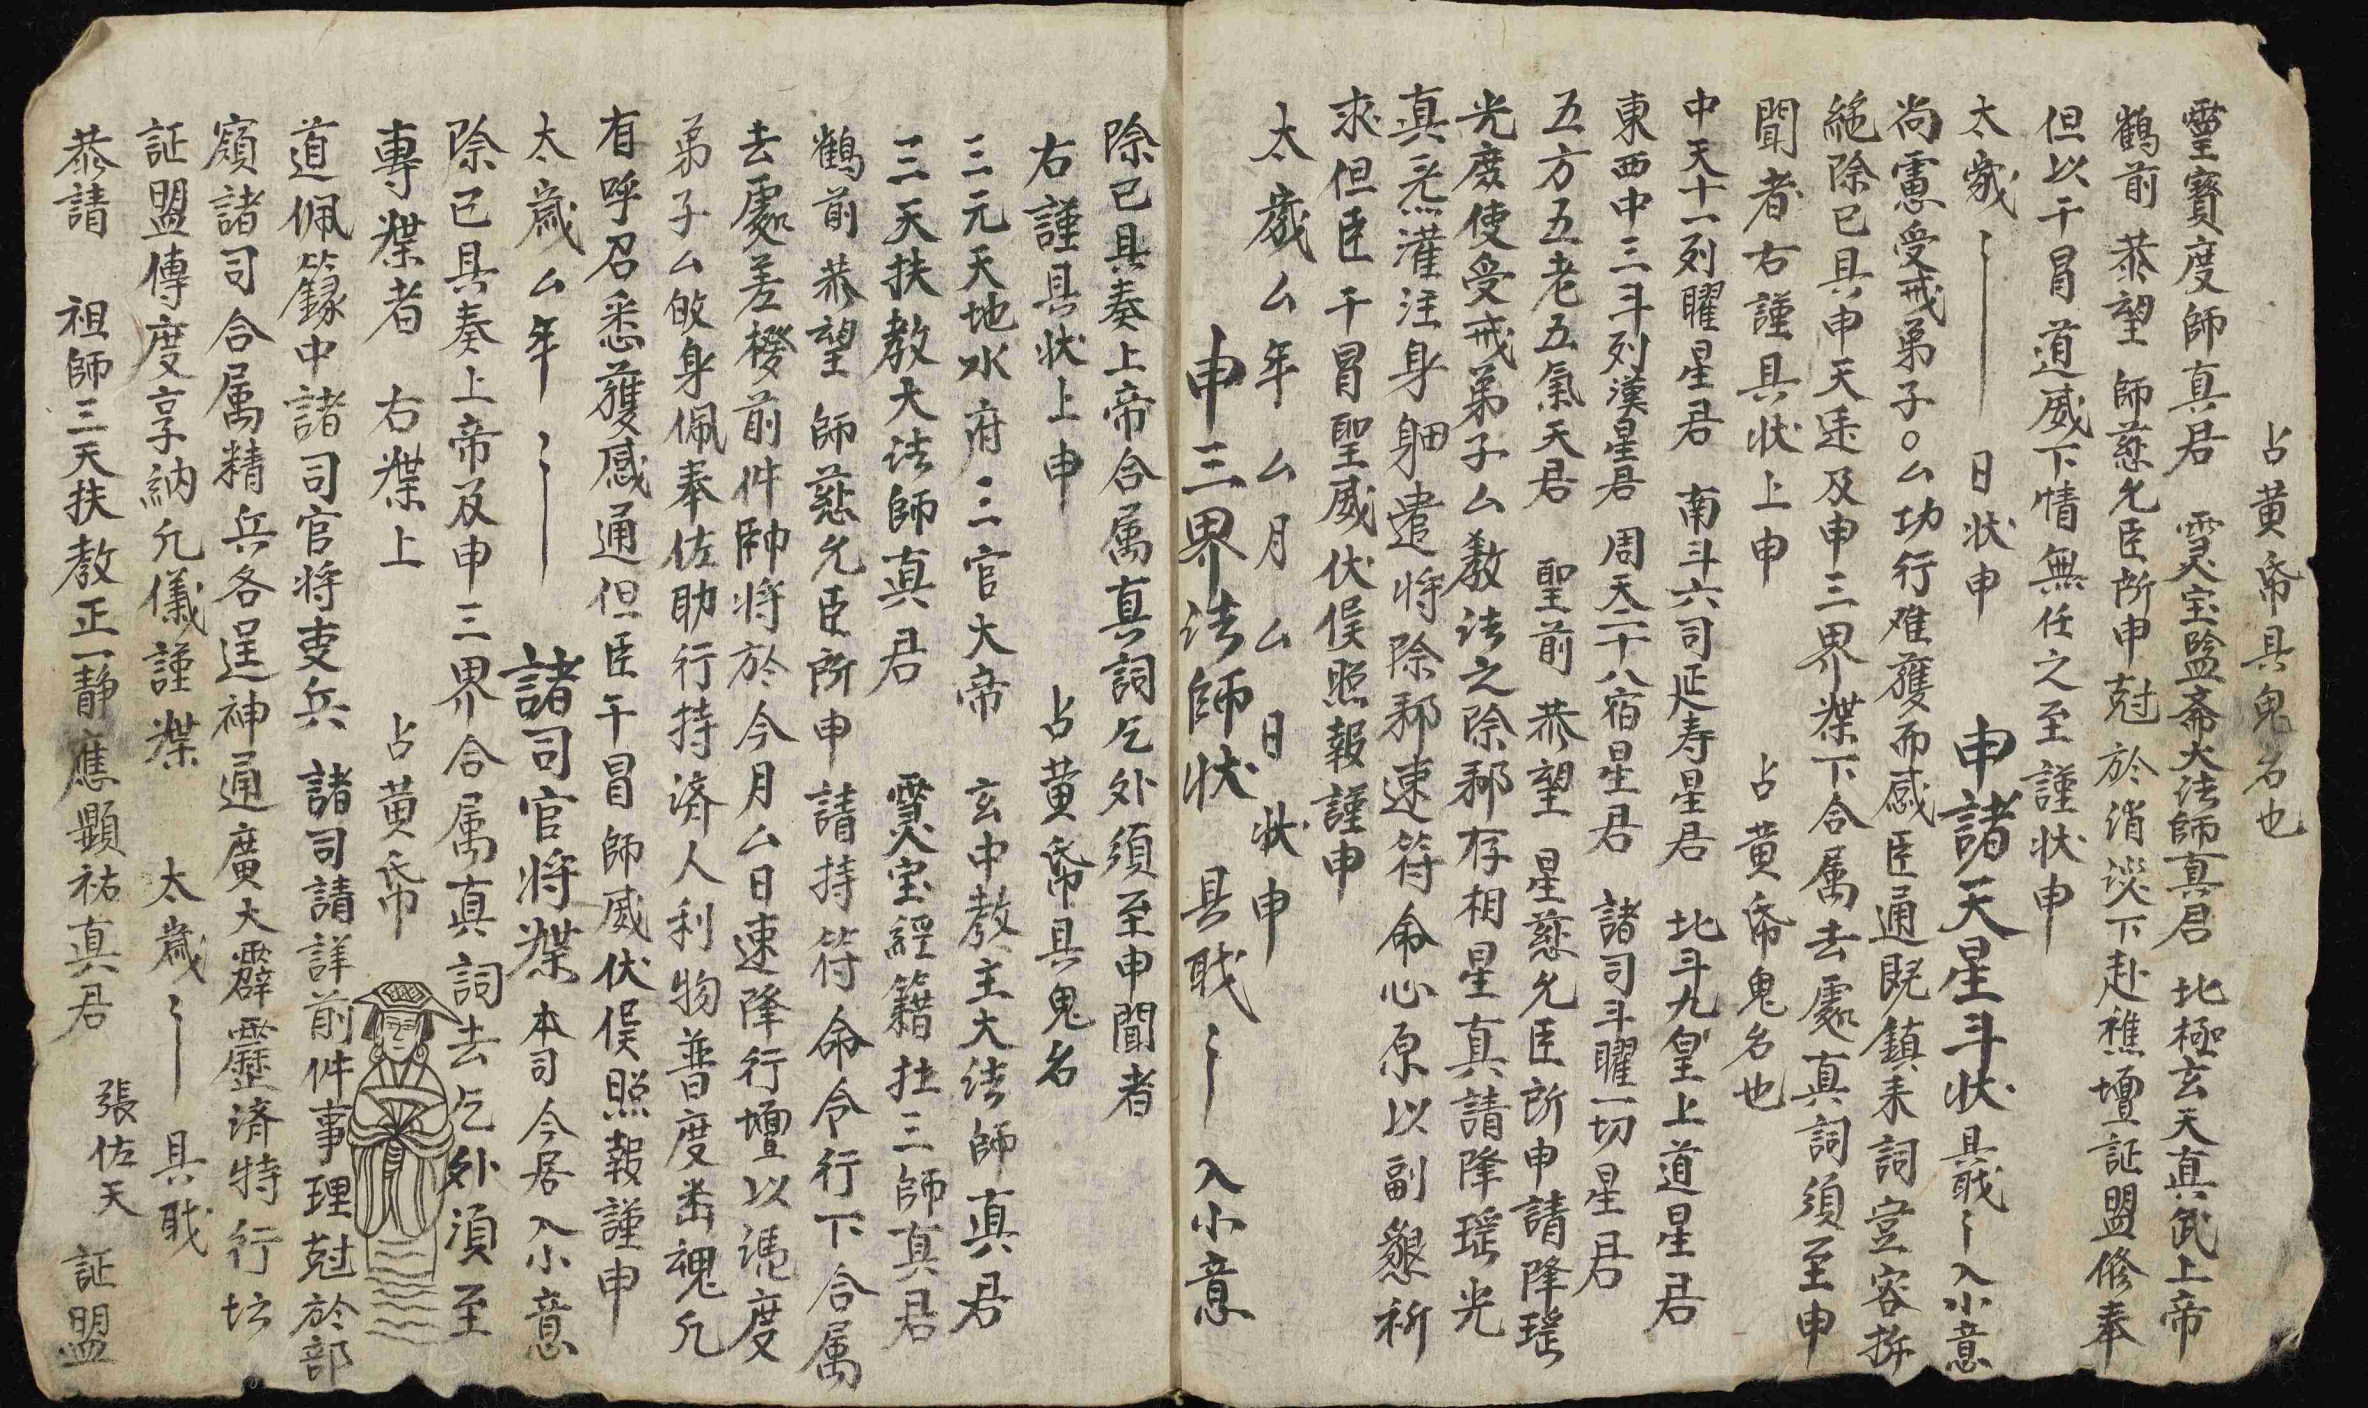 占黄帋具鬼名也
靈寳度師真君　靈宝監斋大法師真君　北極玄天真武上帝
鶴前　恭望　師慈允臣所申尅於消災下赴醮壇証盟修奉
但以干冒道威下情無任之至謹状申
太歲　日状申　申諸天星斗状　具戝　入小意
尚慮受戒弟子〇厶功行难獲而感臣通既鎮来詞豈容拚
絶除已具申天廷及申三界牒下合属去處真詞須至申
聞者右謹具状上申　占黄帋鬼名也
中天十一列曜星君　南斗六司延寿星君　北斗九皇上道星君
東西中三斗列漢星君　周天二十八宿星君　諸司斗曜一切星君
五方五老五氣天君　聖前　恭望　星慈允臣所申請降瑤
光度使受戒弟子厶教法之除邪存相星真請降瑤光
真炁灌注身躯遣将除邪速符命心原以副懇祈
求但臣干冒聖威伏俟照報謹申
太歲厶年厶月厶日状申
申三界法師状　具戝　入小意
除已具奏上帝合属真詞乞外須至申聞者
右謹具状上申　占黄帋具鬼名
三元天地水府三官大帝　玄中教主大法師真君
三天扶教大法師真君　靈宝經籍扗三師真君
鶴前恭望　師慈允臣所申請持符命令行下合属
去處差撥前件帥将於今月厶日速降行壇以憑度
弟子厶敀身佩奉佐助行持济人利物普度畨魂凢
有呼召悉獲感通但臣干冒師威伏俟照報謹申
太歲厶年　諸司官将牒　本司今居入小意
除已具奏上帝及申三界合属真詞去乞外須至
專牒者　右牒上　占黄帋
道佩籙中諸司官将吏兵　諸司請詳前件事理尅於部
領諸司合属精兵各逞神通廣大霹靂济特行坛
証盟傳度享納凢儀謹牒　太歲　具戝
恭請　祖師三天扶教正一静應顯祐真君　張佐天　証盟